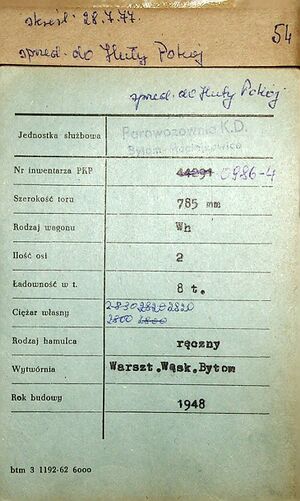 skreśl. 28.7.77.
sprzed. do Huty Pokój
54
sprzed. do Huty Pokój
Jednostka służbowa
Parowozownia K.D.
Bytom-Maciejkowice
Nr inwentarza PKP 44291 0986-4
Szerokość toru 785 mm
Rodzaj wagonu Wh
Ilość osi 2
Ładowność w t. 8 t.
Ciężar własny 2830 2820 2820
2800 2800
Rodzaj hamulca ręczny
Wytwórnia Warszt.Wąsk.Bytom
Rok budowy 1948
btm 3 1192-62 6000